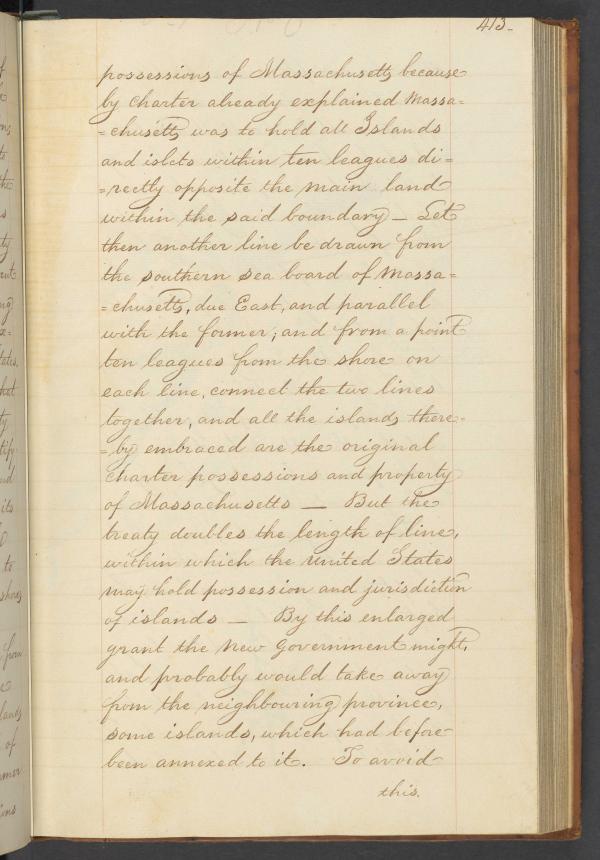 413-
possessions of Massachusetts because
by charter already explained Massa=
=chusetts was to hold all Islands
and islets within ten leagues di=
=rectly opposite the main land
within the said boundary — Let
then another line be drawn from
the southern sea board of Massa=
=chusetts, due East, and parallel
with the former; and from a point
ten leagues from the shore on
each line, connect the two lines
together, and all the islands there=
=by embraced are the original
charter possessions and property
of Massachusetts — But the
treaty doubles the length of line,
within which the United States
may hold possession and jurisdiction
of islands — By this enlarged
grant the New Government might,
and probably would take away
from the neighbouring province,
some islands, which had before
been annexed to it. To avoid
this.